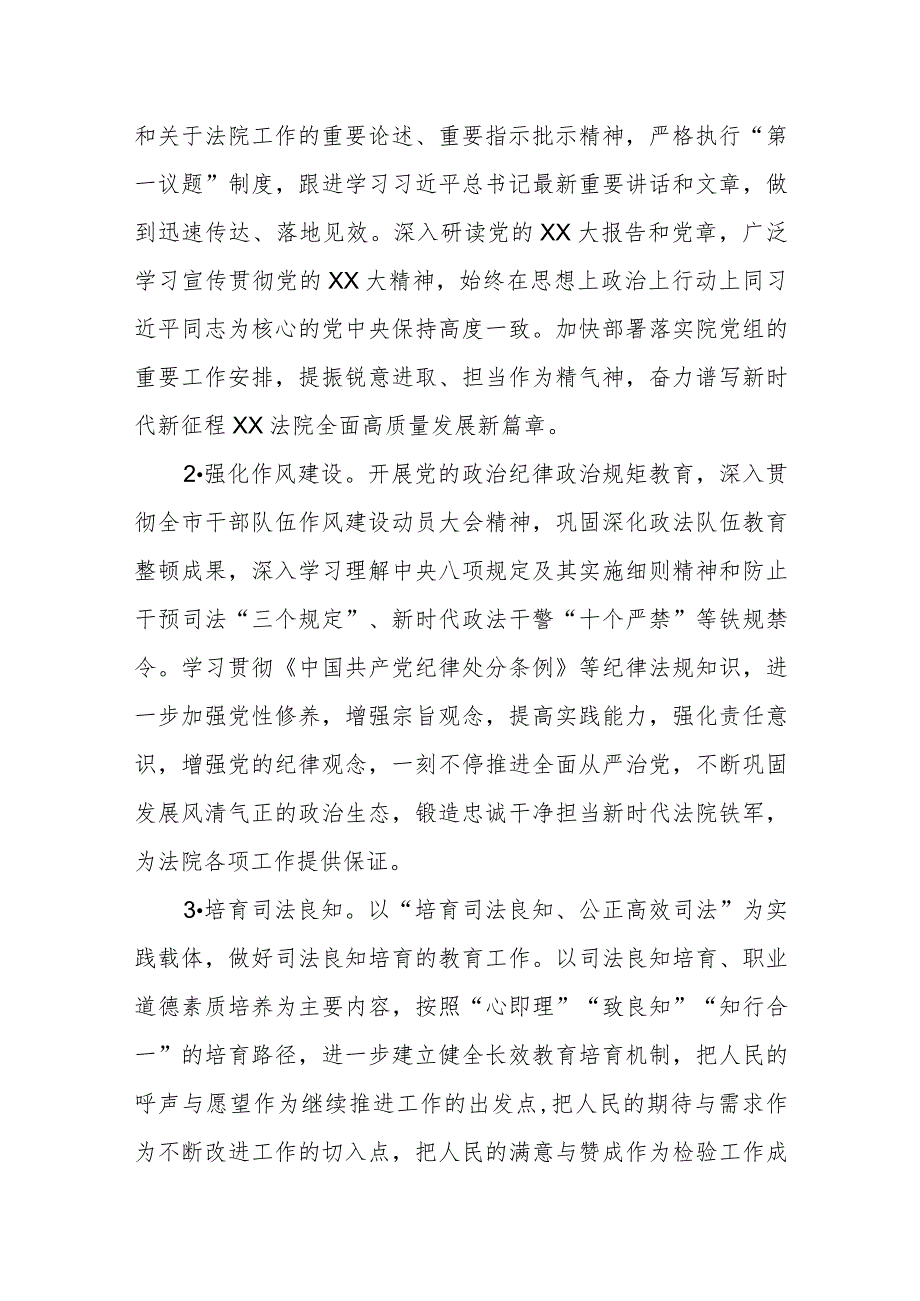 和关于法院工作的重要论述、重要指示批示精神，严格执行“第
一议题”制度，跟进学习习近平总书记最新重要讲话和文章，做
到迅速传达、落地见效。深入研读党的 XX 大报告和党章，广泛
学习宣传贯彻党的 XX 大精神，始终在思想上政治上行动上同习
近平同志为核心的党中央保持高度一致。加快部署落实院党组的
重要工作安排，提振锐意进取、担当作为精气神，奋力谱写新时
代新征程 XX 法院全面高质量发展新篇章。
2•强化作风建设。开展党的政治纪律政治规矩教育，深入贯
彻全市干部队伍作风建设动员大会精神，巩固深化政法队伍教育
整顿成果，深入学习理解中央八项规定及其实施细则精神和防止
干预司法“三个规定”、新时代政法干警“十个严禁”等铁规禁
令。学习贯彻《中国共产党纪律处分条例》等纪律法规知识，进
一步加强党性修养，增强宗旨观念，提高实践能力，强化责任意
识，增强党的纪律观念，一刻不停推进全面从严治党，不断巩固
发展风清气正的政治生态，锻造忠诚干净担当新时代法院铁军，
为法院各项工作提供保证。
3•培育司法良知。以“培育司法良知、公正高效司法”为实
践载体，做好司法良知培育的教育工作。以司法良知培育、职业
道德素质培养为主要内容，按照“心即理”“致良知”“知行合
一”的培育路径，进一步建立健全长效教育培育机制，把人民的
呼声与愿望作为继续推进工作的出发点,把人民的期待与需求作
为不断改进工作的切入点，把人民的满意与赞成作为检验工作成